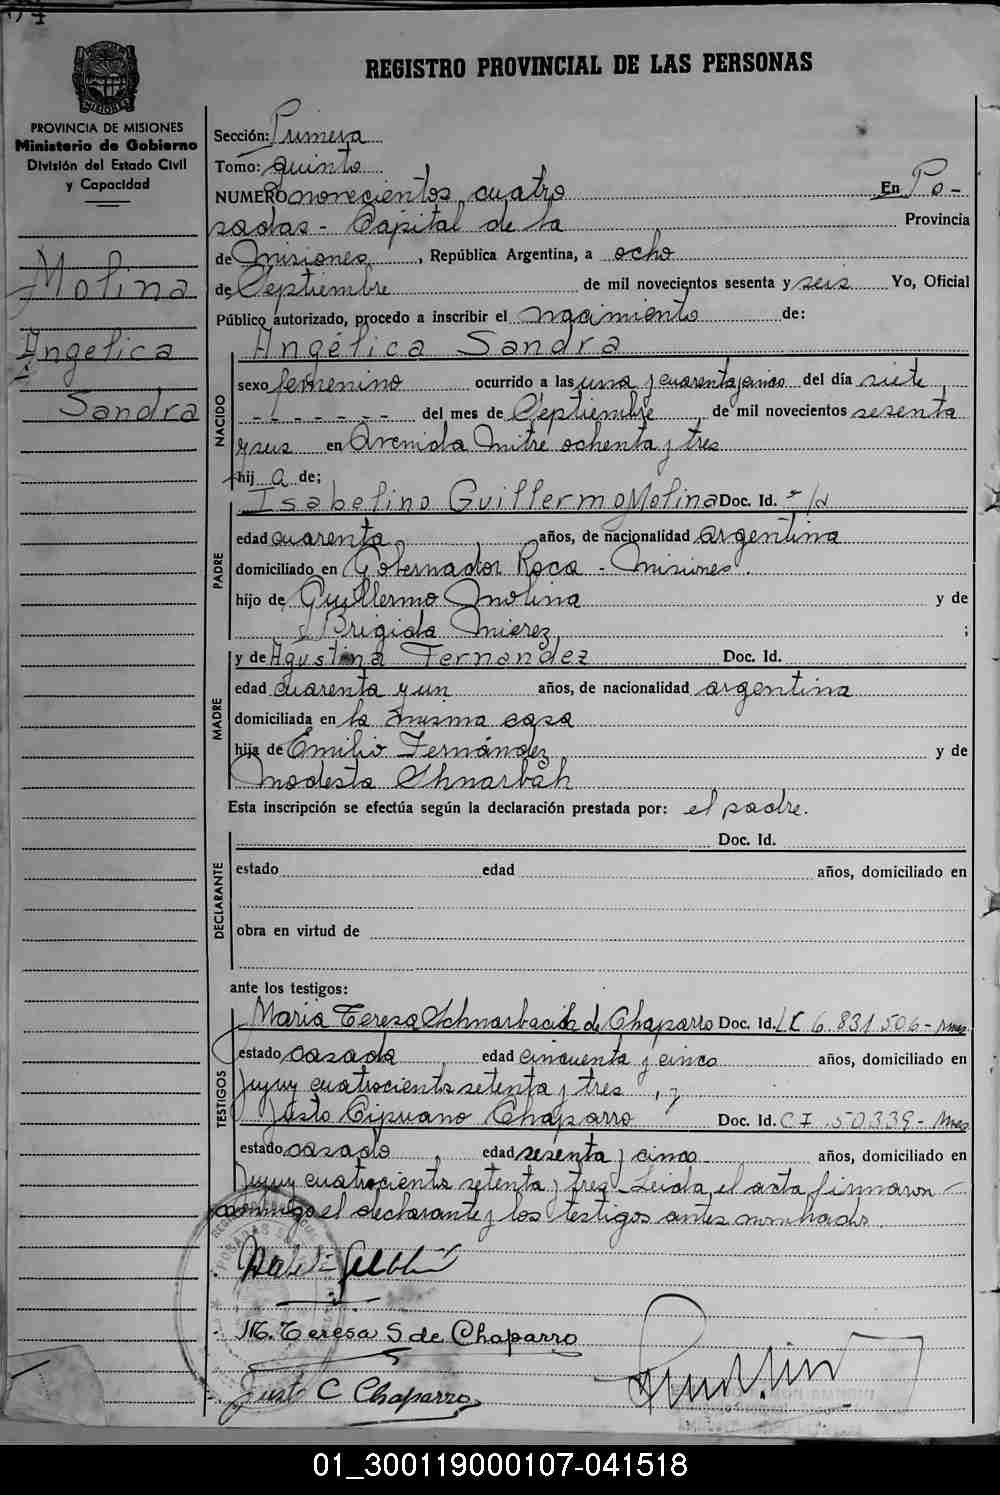 REGISTRO PROVINCIAL DE LAS PERSONAS
MISIONES
PROVINCIA DE MISIONES
Ministerio de Gobierno
División del Estado Civil
y Capacidad
Molina
Angelica
Sandra
Sección: Primera
Tomo: quinto
NUMERO novecientos cuatro En Po-
sadas - Capital de la Provincia
de Misiones, República Argentina, a ocho
de Septiembre de mil novecientos sesenta y seis Yo, Oficial
Público autorizado, procedo a inscribir el nacimiento de:
NACIDO
Angélica Sandra
sexo femenino ocurrido a las una y cuarenta y cinco del día siete
- - - - - - del mes de Septiembre de mil novecientos sesenta
y seis en Avenida Mitre ochenta y tres
hij a de;
PADRE
Isabelino Guillermo Molina Doc. Id.
edad cuarenta años, de nacionalidad argentina
domiciliado en Gobernador Roca - Misiones.
hijo de Guillermo Molina y de
Brigida Mierez ;
MADRE
y de Agustina Fernandez Doc. Id.
edad cuarenta y un años, de nacionalidad argentina
domiciliada en la misma casa
hija de Emilio Fernández y de
Modesta Shnarbah
Esta inscripción se efectúa según la declaración prestada por: el padre.
DECLARANTE
Doc. Id.
estado edad años, domiciliado en
obra en virtud de
ante los testigos:
TESTIGOS
Maria Teresa Schnarbach de Chaparro Doc. Id. LC 6.831.506 - Mnes
estado casada edad cincuenta y cinco años, domiciliado en
Jujuy cuatrocientos setenta y tres, y
Justo Cipriano Chaparro Doc. Id. C I .50339 - Mnes
estado casado, edad sesenta y cinco años, domiciliado en
Jujuy cuatrocientos setenta y tres - Leida el acta firmaron
conmigo el declarante y los testigos antes nombrados.
M. Teresa S de Chaparro
Justo C Chaparro
01_300119000107-041518